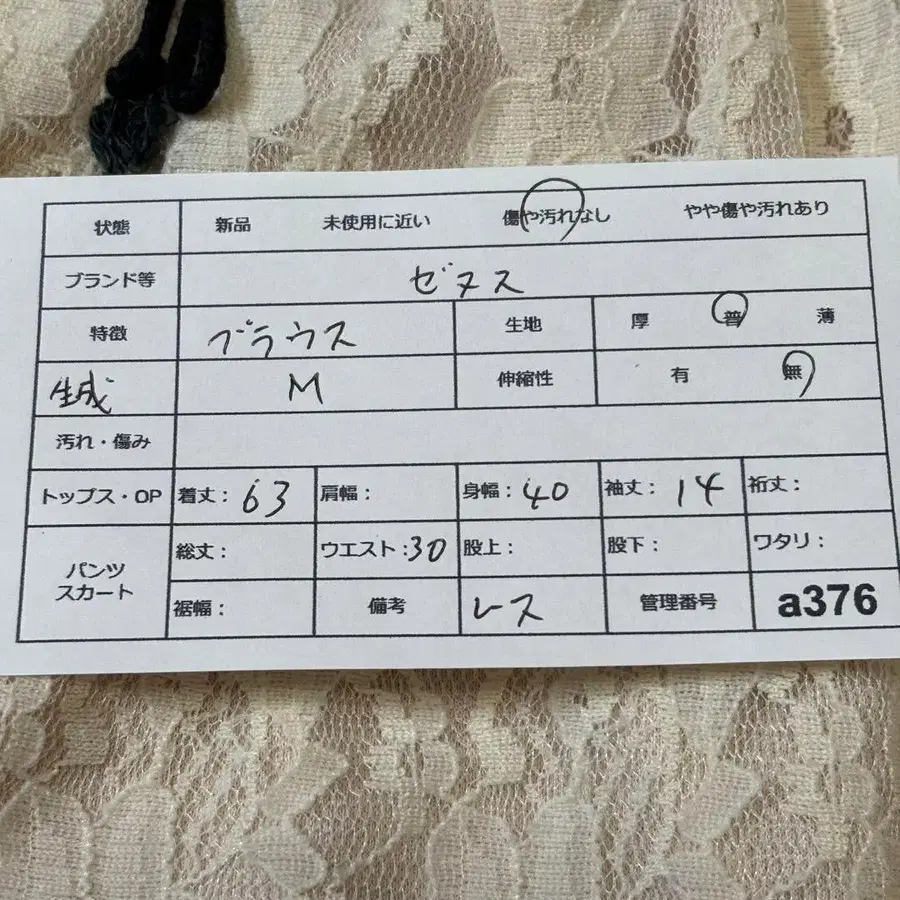 状態 新品 未使用に近い 傷や汚れなし やや傷や汚れあり
ブランド等 ゼヌス
特徴 ブラウス 生地 厚 普 薄
生成 M 伸縮性 有 無
汚れ・傷み
トップス・OP 着丈: 63 肩幅: 身幅: 40 袖丈: 14 裄丈:
パンツ スカート 総丈: ウエスト: 30 股上: 股下: ワタリ:
裾幅: 備考 レス 管理番号 a376